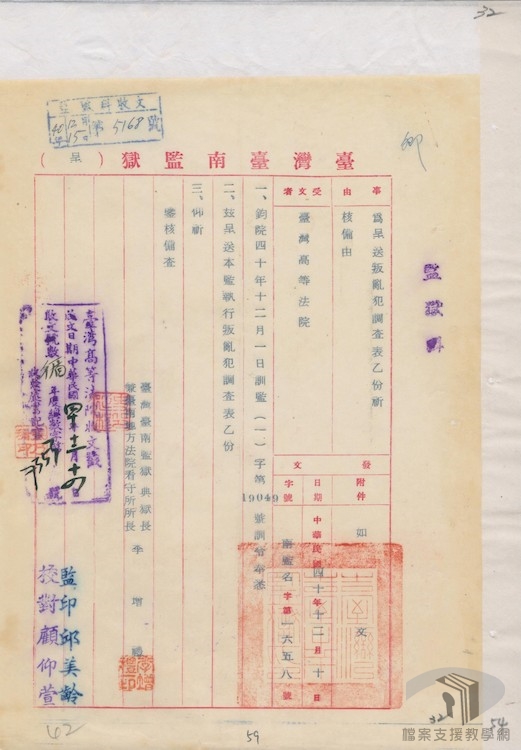 32
監獄科收文
40年12月15日
第5168號
臺灣臺南監獄(呈)
監獄科
事由
為呈送叛亂犯調查表乙份祈
核備由
受文者
臺灣高等法院
發文
附件
如文
日期
中華民國四十年十二月十日
字號
南監名字第一六五八號
一、鈞院四十年十二月一日訓監(一)字第19049號訓令奉悉
二、茲呈送本監執行叛亂犯調查表乙份
三、仰祈
鑒核備查
臺灣臺南監獄典獄長
暨臺南地方法院看守所所長
李增
臺灣高等法院收文戳
收文日期中華民國
監印邱美齡
校對顧仰萱
62
59
32
54
檔案支援教學網